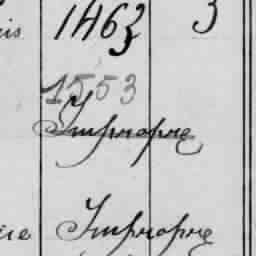 is 1463 3
1553
Impropre
Impropre